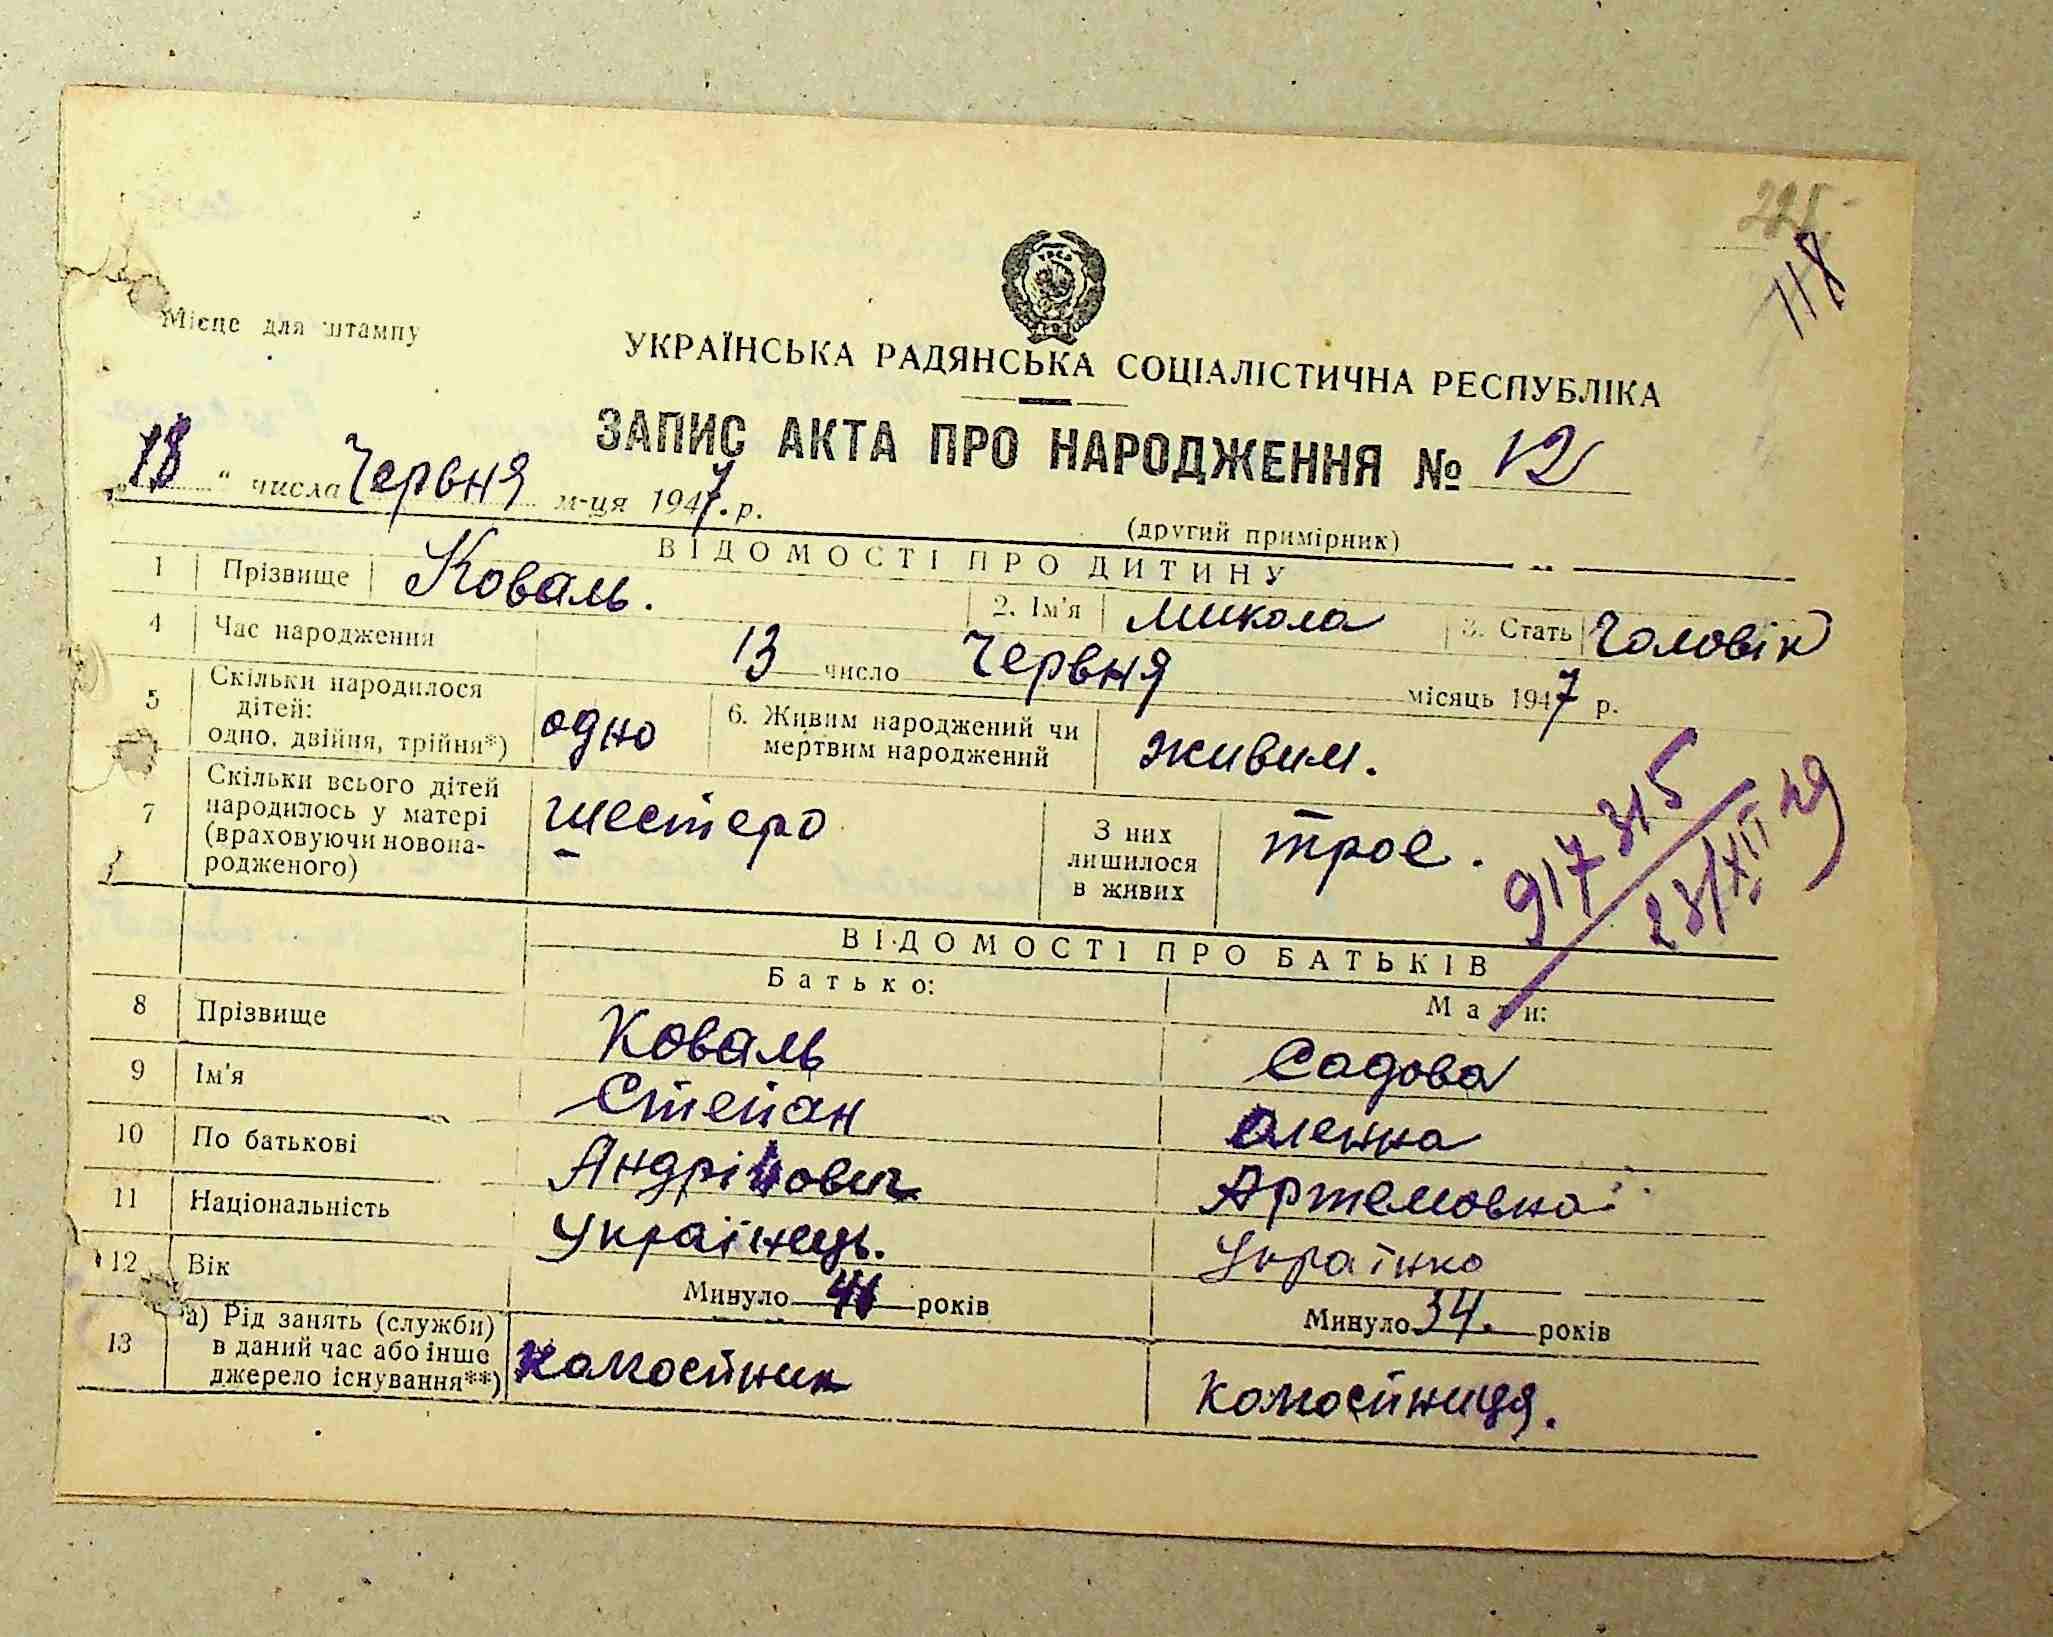 118
Місце для штампу
УКРАЇНСЬКА РАДЯНСЬКА СОЦІАЛІСТИЧНА РЕСПУБЛІКА
ЗАПИС АКТА ПРО НАРОДЖЕННЯ № 12
„18“ числа Червня м-ця 1947. р.
(другий примірник)
ВІДОМОСТІ ПРО ДИТИНУ
1 Прізвище Коваль. 2. Ім'я Микола 3. Стать Чоловік
4 Час народження 13 число Червня місяць 1947 р.
5 Скільки народилося
дітей:
одно, двійня, трійня*) одно 6. Живим народжений чи
мертвим народжений живим.
7 Скільки всього дітей
народилось у матері
(враховуючи новона-
родженого) шестеро З них
лишилося
в живих троє.
917315
23/XII 49
ВІДОМОСТІ ПРО БАТЬКІВ
Батько: Мати:
8 Прізвище Коваль Садова
9 Ім'я Степан Оленна
10 По батькові Андрійович Артемовна
11 Національність Українець. Українка
12 Вік Минуло 41 років Минуло 34. років
13 а) Рід занять (служби)
в даний час або інше
джерело існування**) колгоспник колгоспниця.